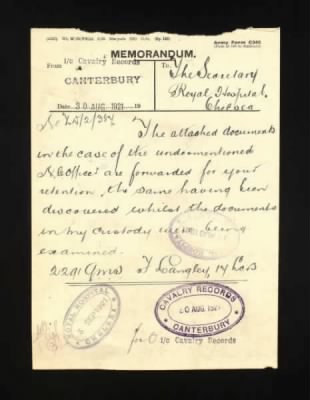 Army Form C348
MEMORANDUM.
From i/c Cavalry Records
CANTERBURY
To The Secretary
Royal Hospital,
Chelsea
Date 30 AUG. 1921 19
The attached documents
in the case of the undermentioned
are forwarded for your
retention, the same having been
discovered whilst the documents
in my custody were being
examined.
2291 Langley,
ROYAL HOSPITAL
SEP 1921
CHELSEA
CAVALRY RECORDS
30 AUG. 1921
CANTERBURY
for i/c Cavalry Records